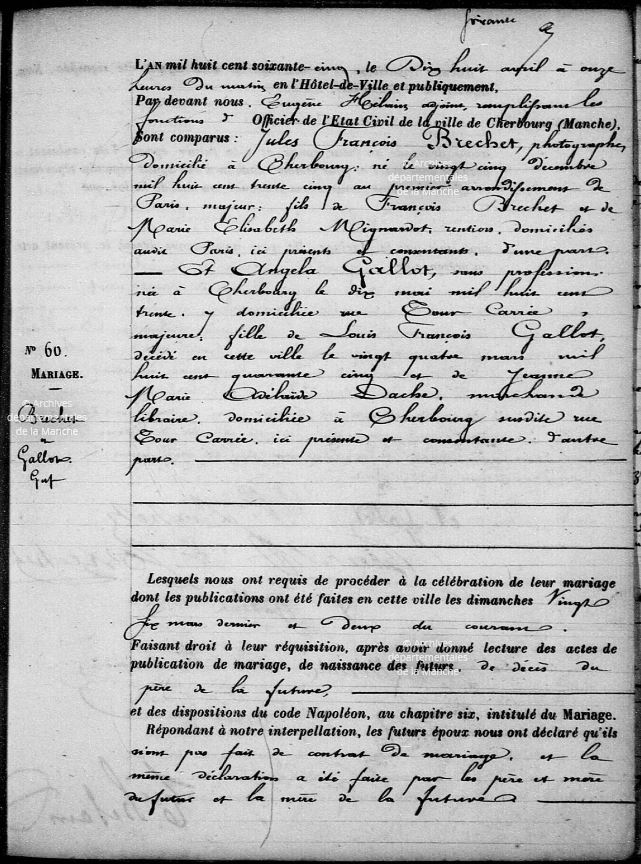 soixante
L'AN mil huit cent soixante-cinq, le Dix huit avril à onze
heures du matin en l'Hôtel-de-Ville et publiquement,
Par devant nous, Eugène Hélain adjoint, remplissant les
fonctions d' Officier de l'Etat Civil de la ville de Cherbourg (Manche),
Sont comparus : Jules François Brechet, photographe,
domicilié à Cherbourg; né le vingt cinq décembre
mil huit cent trente cinq au premier arrondissement de
Paris, majeur; fils de François Brechet et de
Marie Elisabeth Mignardot, rentiers, domiciliés
audit Paris, ici présents et consentants, d'une part.
— Et Angela Gallot, sans profession,
née à Cherbourg le dix mai mil huit cent
trente, y domiciliée rue Tour Carrée,
majeure, fille de Louis François Gallot,
décédé en cette ville le vingt quatre mars mil
huit cent quarante cinq et de Jeanne
Marie Adélaïde Dache, marchande
libraire, domiciliée à Cherbourg susdite rue
Tour Carrée, ici présente et consentante, d'autre
part.
N° 60.
MARIAGE.
Brechet
&
Gallot.
© Archives
départementales
de la Manche
Lesquels nous ont requis de procéder à la célébration de leur mariage
dont les publications ont été faites en cette ville les dimanches Vingt
Six mars dernier et Deux du courant.
Faisant droit à leur réquisition, après avoir donné lecture des actes de
publication de mariage, de naissance des futurs, de décès du
père de la future,
et des dispositions du code Napoléon, au chapitre six, intitulé du Mariage.
Répondant à notre interpellation, les futurs époux nous ont déclaré qu'ils
n'ont pas fait de contrat de mariage, et la
même déclaration a été faite par les père et mère
du futur et la mère de la future
© Archives
départementales
de la Manche
© Archives
départementales
de la Manche